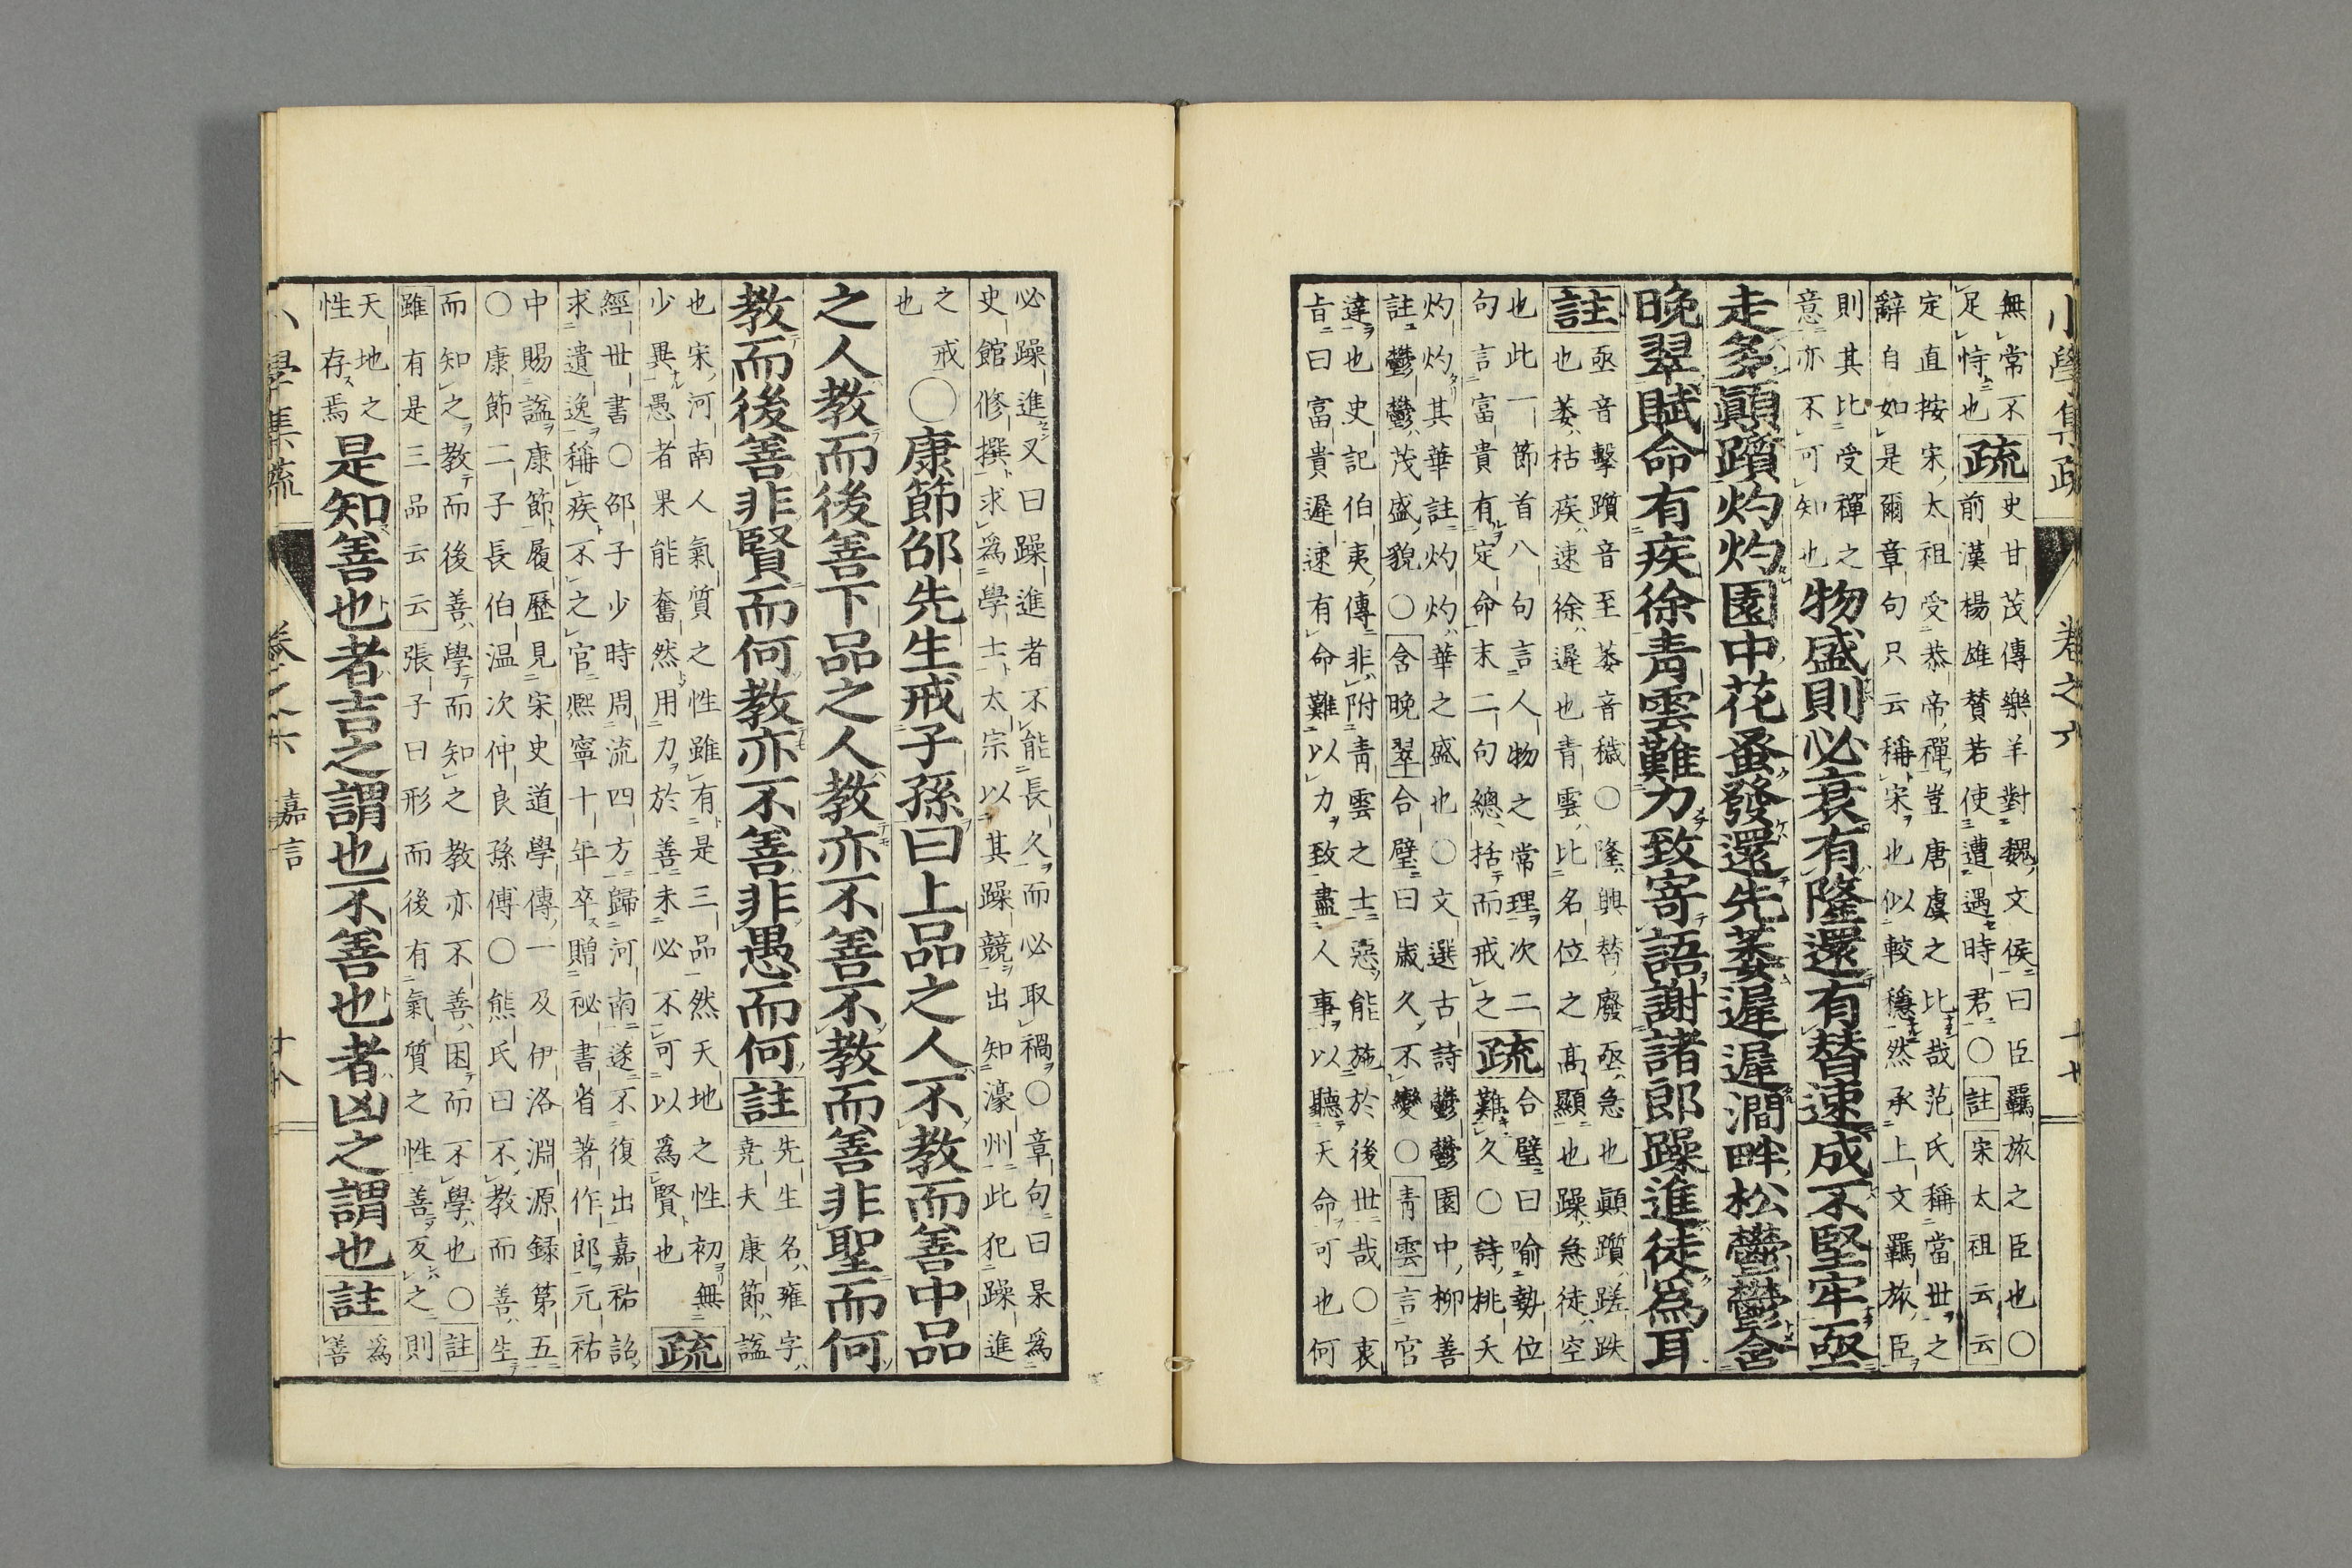 小學集疏 卷之六
無常不
足恃也
疏
史甘茂傳樂羊對魏文侯曰臣羈旅之臣也〇
前漢楊雄賛若使遭遇時君〇註宋太祖云云
定直按宋太祖受恭帝禪豈唐虞之比哉范氏稱當世之
辭自如是爾章句只云稱宋也似較穩然承上文羈旅臣
則其比受禪之
意亦不可知也
物盛則必衰有隆還有替速成不堅牢亟
走多顚躓灼灼園中花蚤發還先萎遲遲澗畔松鬱鬱含
晩翠賦命有疾徐青雲難力致寄語謝諸郎躁進徒爲耳
註
亟音擊躓音至萎音穢〇隆興替廢亟急也顚躓蹉跌
也萎枯疾速徐遲也青雲比名位之髙顯也躁急徒空
也此一節首八句言人物之常理次二
句言富貴有定命末二句總括而戒之
疏
合璧曰喻勢位
難久〇詩桃夭
灼灼其華註灼灼華之盛也〇文選古詩鬱鬱園中柳善
註鬱鬱茂盛貌〇含晩翠合璧曰歲久不變〇青雲言官
達也史記伯夷傳非附青雲之士惡能施於後世哉〇衷
旨曰富貴遲速有命難以力致盡人事以聽天命可也何
必躁進又曰躁進者不能長久而必取禍〇章句曰杲爲
史館修撰求爲學士太宗以其躁競出知濠州此犯躁進
之戒
也
〇康節邵先生戒子孫曰上品之人不教而善中品
之人教而後善下品之人教亦不善不教而善非聖而何
教而後善非賢而何教亦不善非愚而何
註
先生名雍字
堯夫康節諡
也宋河南人氣質之性雖有是三品然天地之性初無
少異愚者果能奮然用力於善未必不可以爲賢也
疏
經世書〇邵子少時周流四方歸河南遂不復出嘉祐詔
求遺逸稱疾不之官熈寧十年卒贈祕書省著作郎元祐
中賜諡康節履歷見宋史道學傳一及伊洛淵源録第五
〇康節二子長伯温次仲良孫傅〇熊氏曰不教而善生
而知之教而後善學而知之教亦不善困而不學也〇註
雖有是三品云云張子曰形而後有氣質之性善反之則
天地之
性存焉
是知善也者吉之謂也不善也者凶之謂也
註
爲
善
小學集疏 卷之六 嘉言 廿八